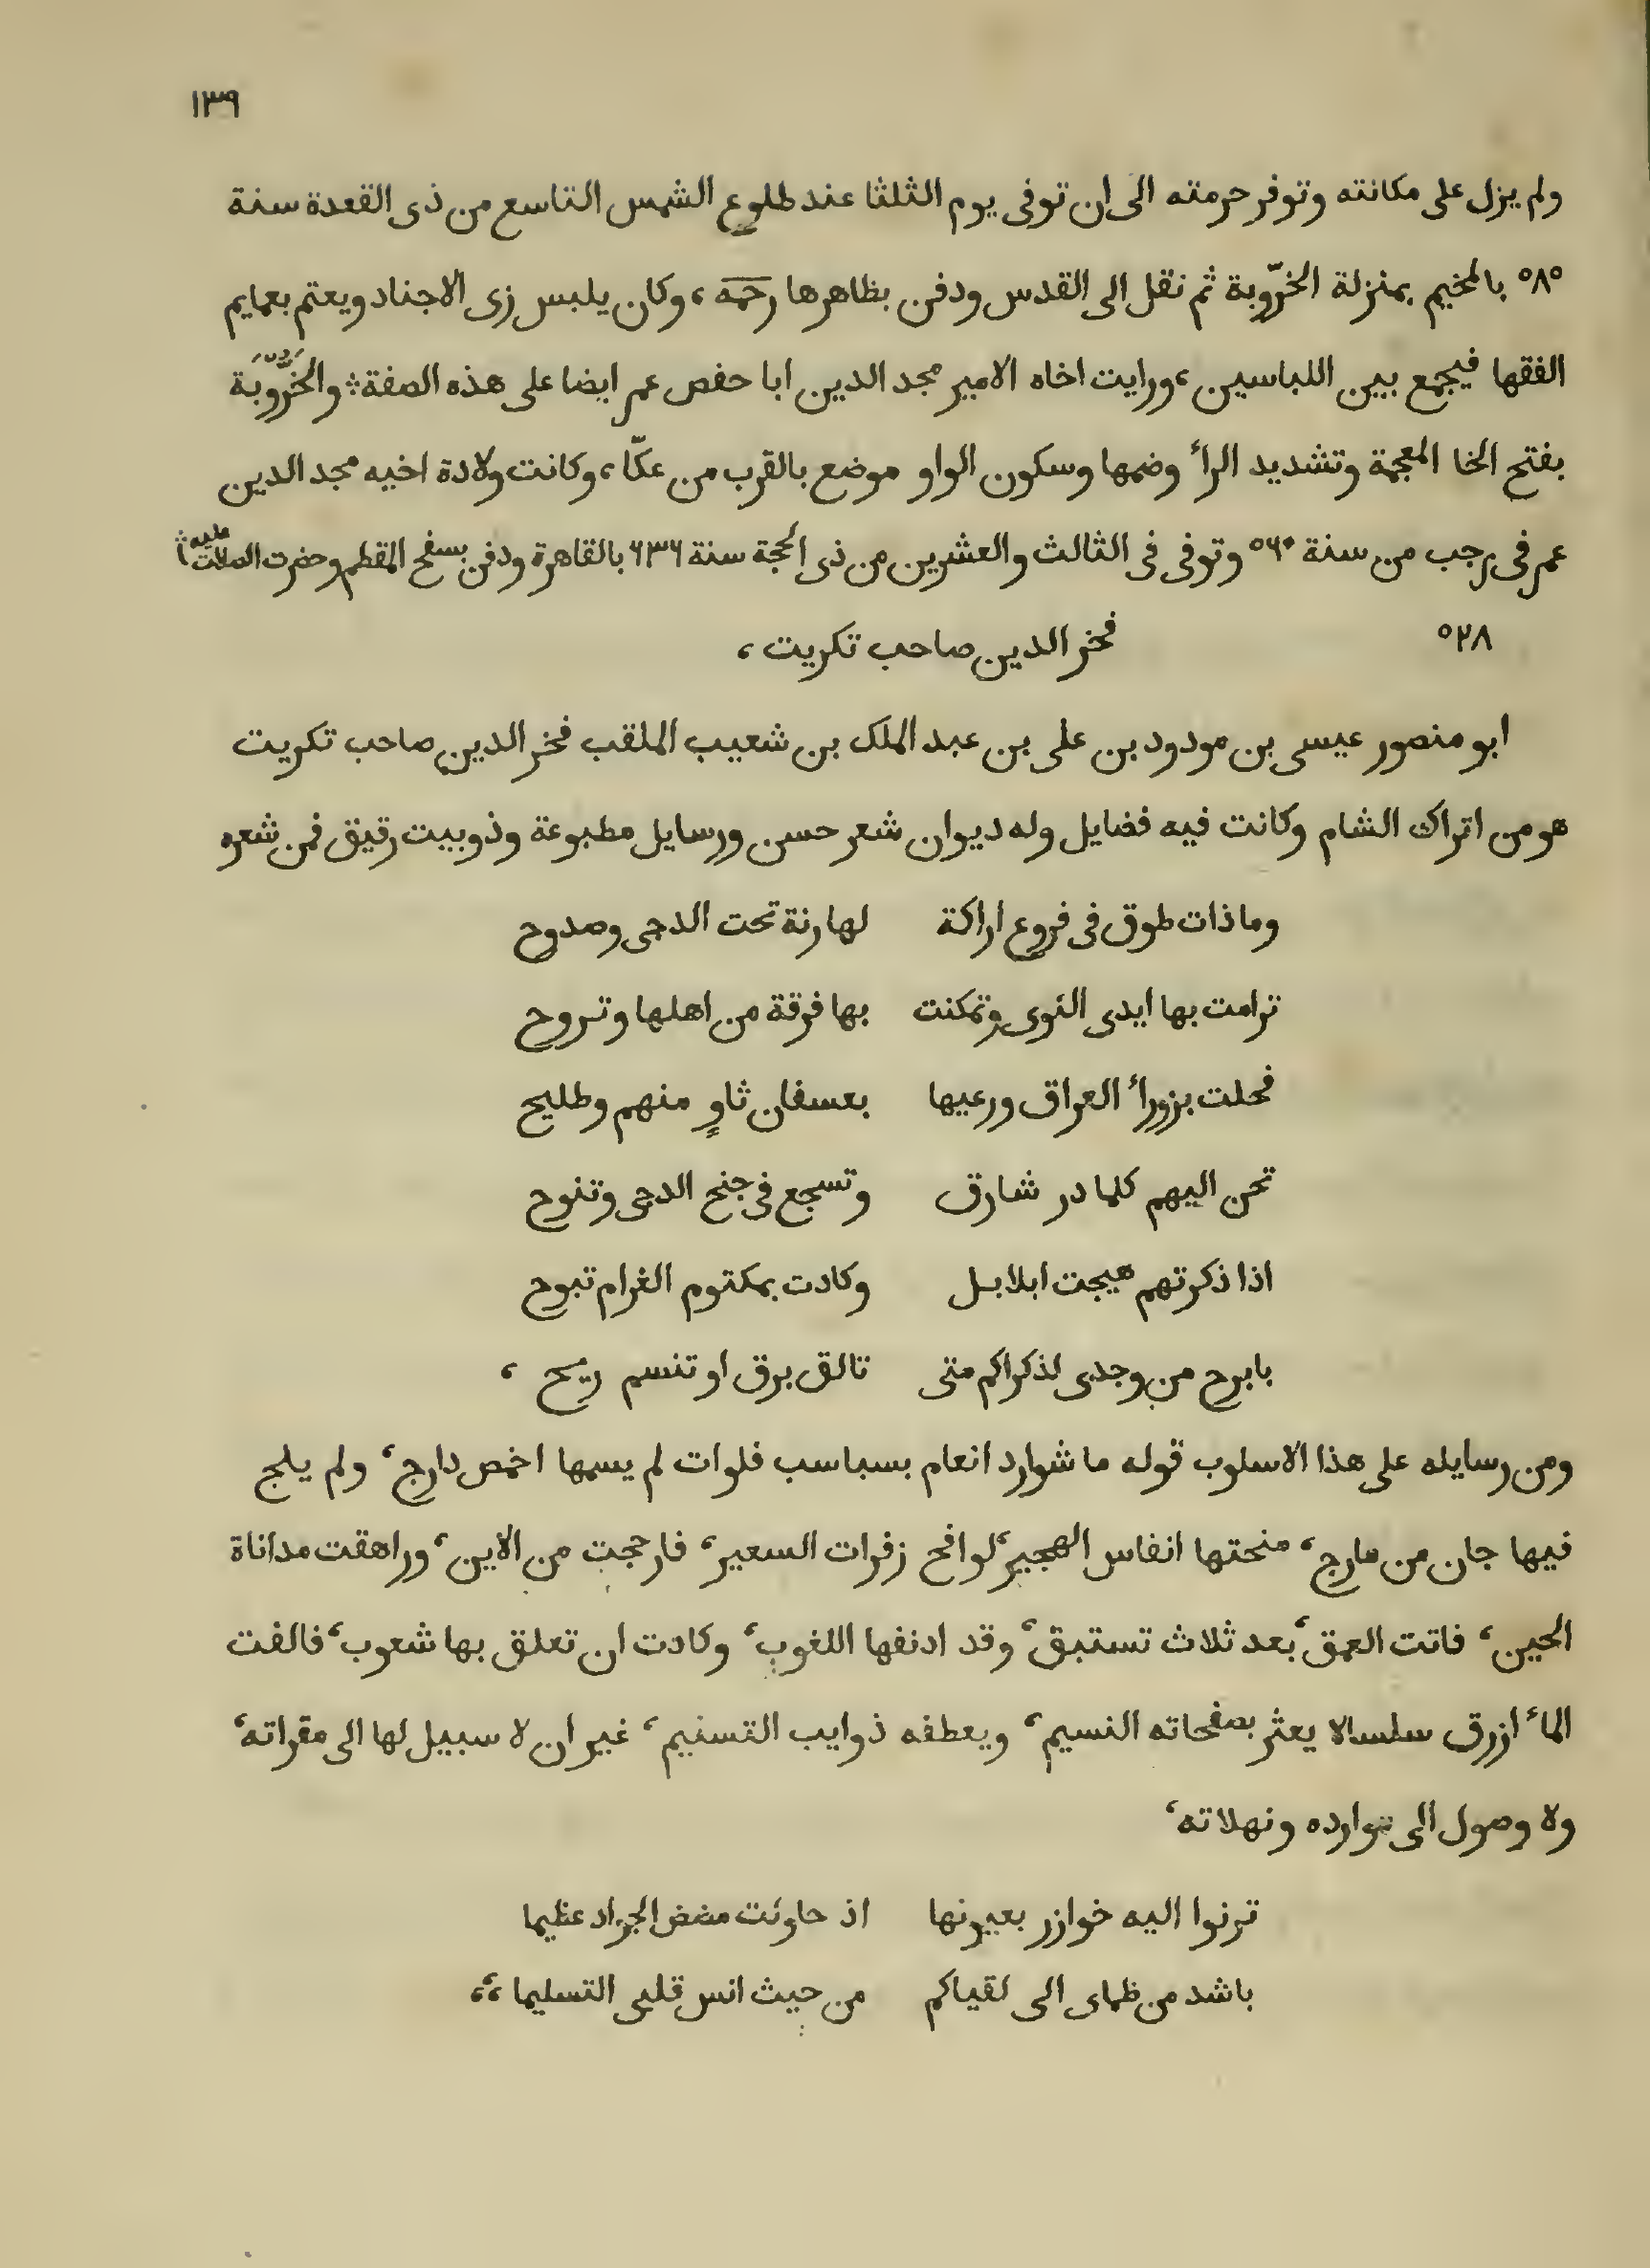 ١٣٩
ولم يزل على مكانته وتوفر حرمته الى ان توفى يوم الثلثا عند طلوع الشمس التاسع من ذى القعدة سنة
٥٨٥ بالمخيم بمنزلة الخرّوبة ثم نقل الى القدس ودفن بظاهرها رحمه، وكان يلبس زى الاجناد ويعتم بعمايم
الفقها فيجمع بين اللباسين، ورايت اخاه الامير مجد الدين ابا حفص عمر ايضا على هذه الصفة؛ والخَرُّوبَة
بفتح الخا المعجمة وتشديد الرأ وضمها وسكون الواو موضع بالقرب من عكّا، وكانت ولادة اخيه مجد الدين
عمر فى رجب من سنة ٥٦٠ وتوفى فى الثالث والعشرين من ذى الحجة سنة ٦٣٦ بالقاهرة ودفن بسفح المقطم وحضرت الصلات عليه؛
٥٢٨ فخر الدين صاحب تكريت،
ابو منصور عيسى بن مودود بن على بن عبد الملك بن شعيب الملقب فخر الدين صاحب تكريت
هو من اتراك الشام وكانت فيه فضايل وله ديوان شعر حسن ورسايل مطبوعة وذوبيت رقيق فمن شعره
وما ذات طوق فى فروع اراكة لها رنة تحت الدجى وصدوح
ترامت بها ايدى النوى وتمكنت بها فرقة من اهلها وتروح
فحلت بزورأ العراق ورعيها بعسفان ثاوٍ منهم وطليح
تحن اليهم كلما در شارق وتسجع فى جنح الدجى وتنوح
اذا ذكرتهم هيجت ابلابل وكادت بمكتوم الغرام تبوح
بابرح من وجدى لذكراكم متى تالق برق او تنسم ريح ،
ومن رسايله على هذا الاسلوب قوله ما شوارد انعام بسباسب فلوات لم يسمها اخمص دارج، ولم يلج
فيها جان من مارج، منحتها انفاس الهجير، لوافح زفرات السعير، فارحجت من الاين، وراهقت مداناة
الحين، فاتت العمق، بعد ثلاث تستبق، وقد ادنفها اللغوب، وكادت ان تعلق بها شعوب، فالفت
المأ ازرق سلسالا يعثر بصفحاته النسيم، ويعطفه ذوايب التسنيم، غير ان لا سبيل لها الى مقراته،
ولا وصول الى موارده ونهلاته،
ترنوا اليه خوازر بعيونها اذ حاولت مضض الجواد عظيما
باشد من ظماى الى لقياكم من حيث انس قلبى التسليما ،،